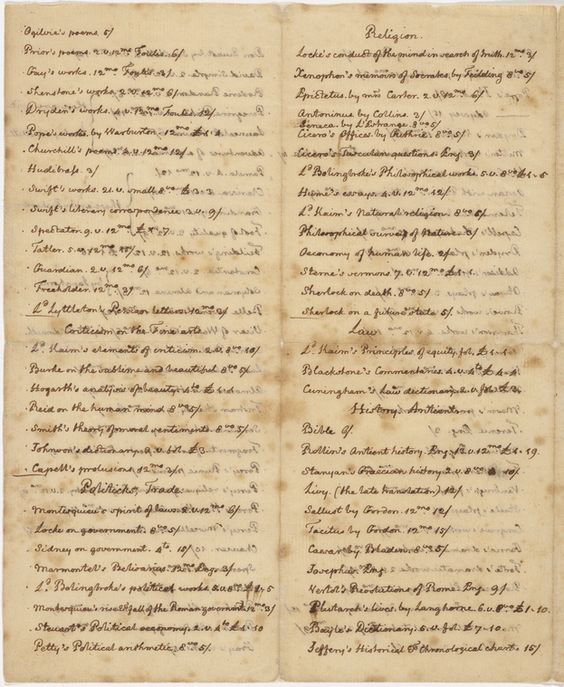 Ogilvie's poems. 5/
Prior's poems. 2.v. 12mo Foulis. 6/
Gay's works. 12mo Foulis. 3/
Shenstone's works. 2.v. 12mo 6/
Dryden's works. 4.v. 12mo Foulis. 12/
Pope's works. by Warburton. 12mo £1.4
Churchill's poems. 4.v. 12mo 12/
Hudibrass. 3/
Swift's works. 21.v. small 8vo £3.3
Swift's literary correspondence. 3.v. 9/
Spectator. 9.v. 12mo £1.7
Tatler. 5.v. 12mo 15/
Guardian. 2.v. 12mo 6/
Freeholder. 12mo 3/
Ld. Lyttleton's Persian letters. 12mo 3/
Criticism on the Fine arts.
Ld. Kaim's elements of criticism. 2.v. 8vo 10/
Burke on the sublime and beautiful. 8vo 5/
Hogarth's analysis of beauty. 4to £1.1
Reid on the human mind. 8vo 5/
Smith's theory of moral sentiments. 8vo 5/
Johnson's dictionary. 2.v. fol. £3.
Capell's prolusions. 12mo 3/
Politicks, Trade.
Montesquieu's spirit of laws. 2.v. 12mo 6/
Locke on government. 8vo 5/
Sidney on government. 4to 15/
Marmontel's Belisarius. 12mo Eng. 3/
Ld. Bolingbroke's political works. 5.v. 8vo £1.5
Montesquieu's rise & fall of the Roman governmt. 12mo 3/
Steuart's Political oeconomy. 2.v. 4to £1.10
Petty's Political arithmetic. 8vo 5/
Religion.
Locke's conduct of the mind in search of truth. 12mo 3/
Xenophon's memoirs of Socrates. by Feilding. 8vo 5/
Epictetus. by mrs Carter. 2.v. 12mo 6/
Antoninus by Collins. 3/
Seneca. by L'Estrange. 8vo 5/
Cicero's Offices. by Guthrie. 8vo 5/
Cicero's Tusculan questions. Eng. 3/
Ld. Bolingbroke's Philosophical works. 5.v. 8vo £1-5
Hume's essays. 4.v. 12mo 12/
Ld. Kaim's Natural religion. 8vo 5/
Philosophical survey of Nature. 3/
Oeconomy of human life. 2/
Sterne's sermons. 7.v. 12mo £1-1.
Sherlock on death. 8vo 5/
Sherlock on a future state. 5/
Law.
Ld. Kaim's Principles of equity. fol. £1-1
Blackstone's Commentaries. 4.v. 4to £4-4
Cuningham's Law dictionary. 2.v. fol. £3.
History. Antient.
Bible 6/.
Rollin's Antient history. Eng. 13.v. 12mo £1-19.
Stanyan's Graecian history. 2.v. 8vo 10/
Livy. (the late translation) 12/
Sallust by Gordon. 12mo 12/
Tacitus by Gordon. 12mo 15/
Caesar by Bladen. 8vo 5/
Josephus. Eng.
Vertot's Revolutions of Rome. Eng. 9/
Plutarch's lives. by Langhorne. 6.v. 8vo £1-10.
Bayle's Dictionary. 5.v. fol. £7-10.
Jeffery's Historical & Chronological chart. 15/